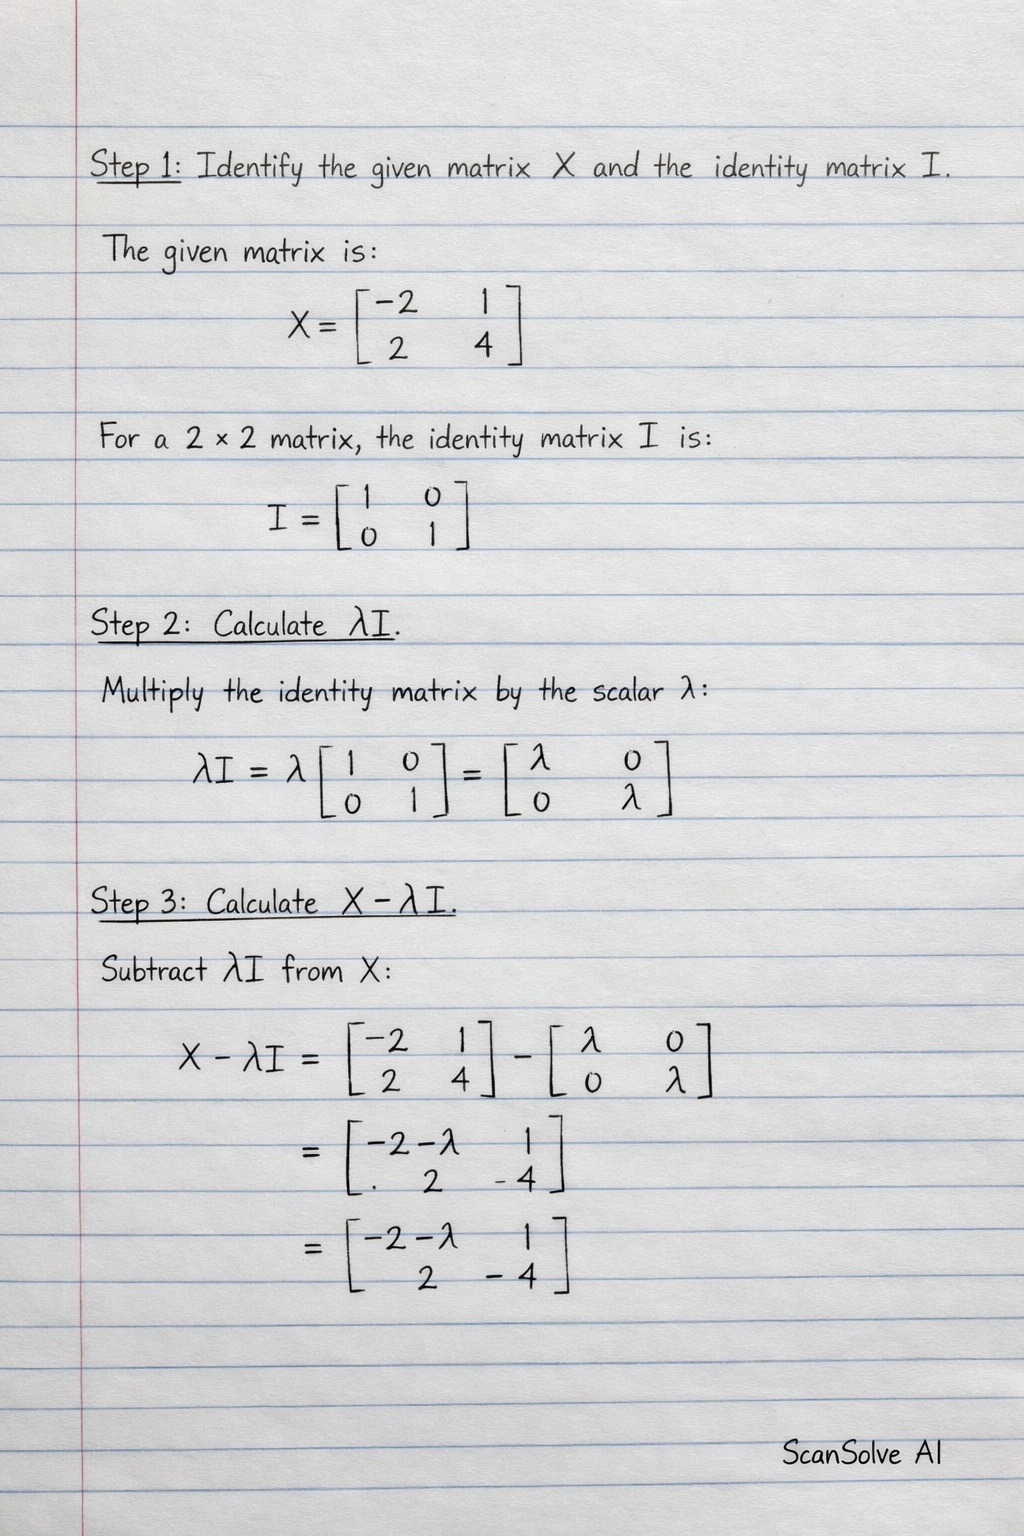 Step 1: Identify the given matrix X and the identity matrix I.
The given matrix is:
X = [ -2 1
2 4 ]
For a 2 × 2 matrix, the identity matrix I is:
I = [ 1 0
0 1 ]
Step 2: Calculate λI.
Multiply the identity matrix by the scalar λ:
λI = λ [ 1 0 ] = [ λ 0 ]
[ 0 1 ] [ 0 λ ]
Step 3: Calculate X - λI.
Subtract λI from X:
X - λI = [ -2 1 ] - [ λ 0 ]
[ 2 4 ] [ 0 λ ]
= [ -2-λ 1
. 2 -4 ]
= [ -2-λ 1
2 -4 ]
ScanSolve AI